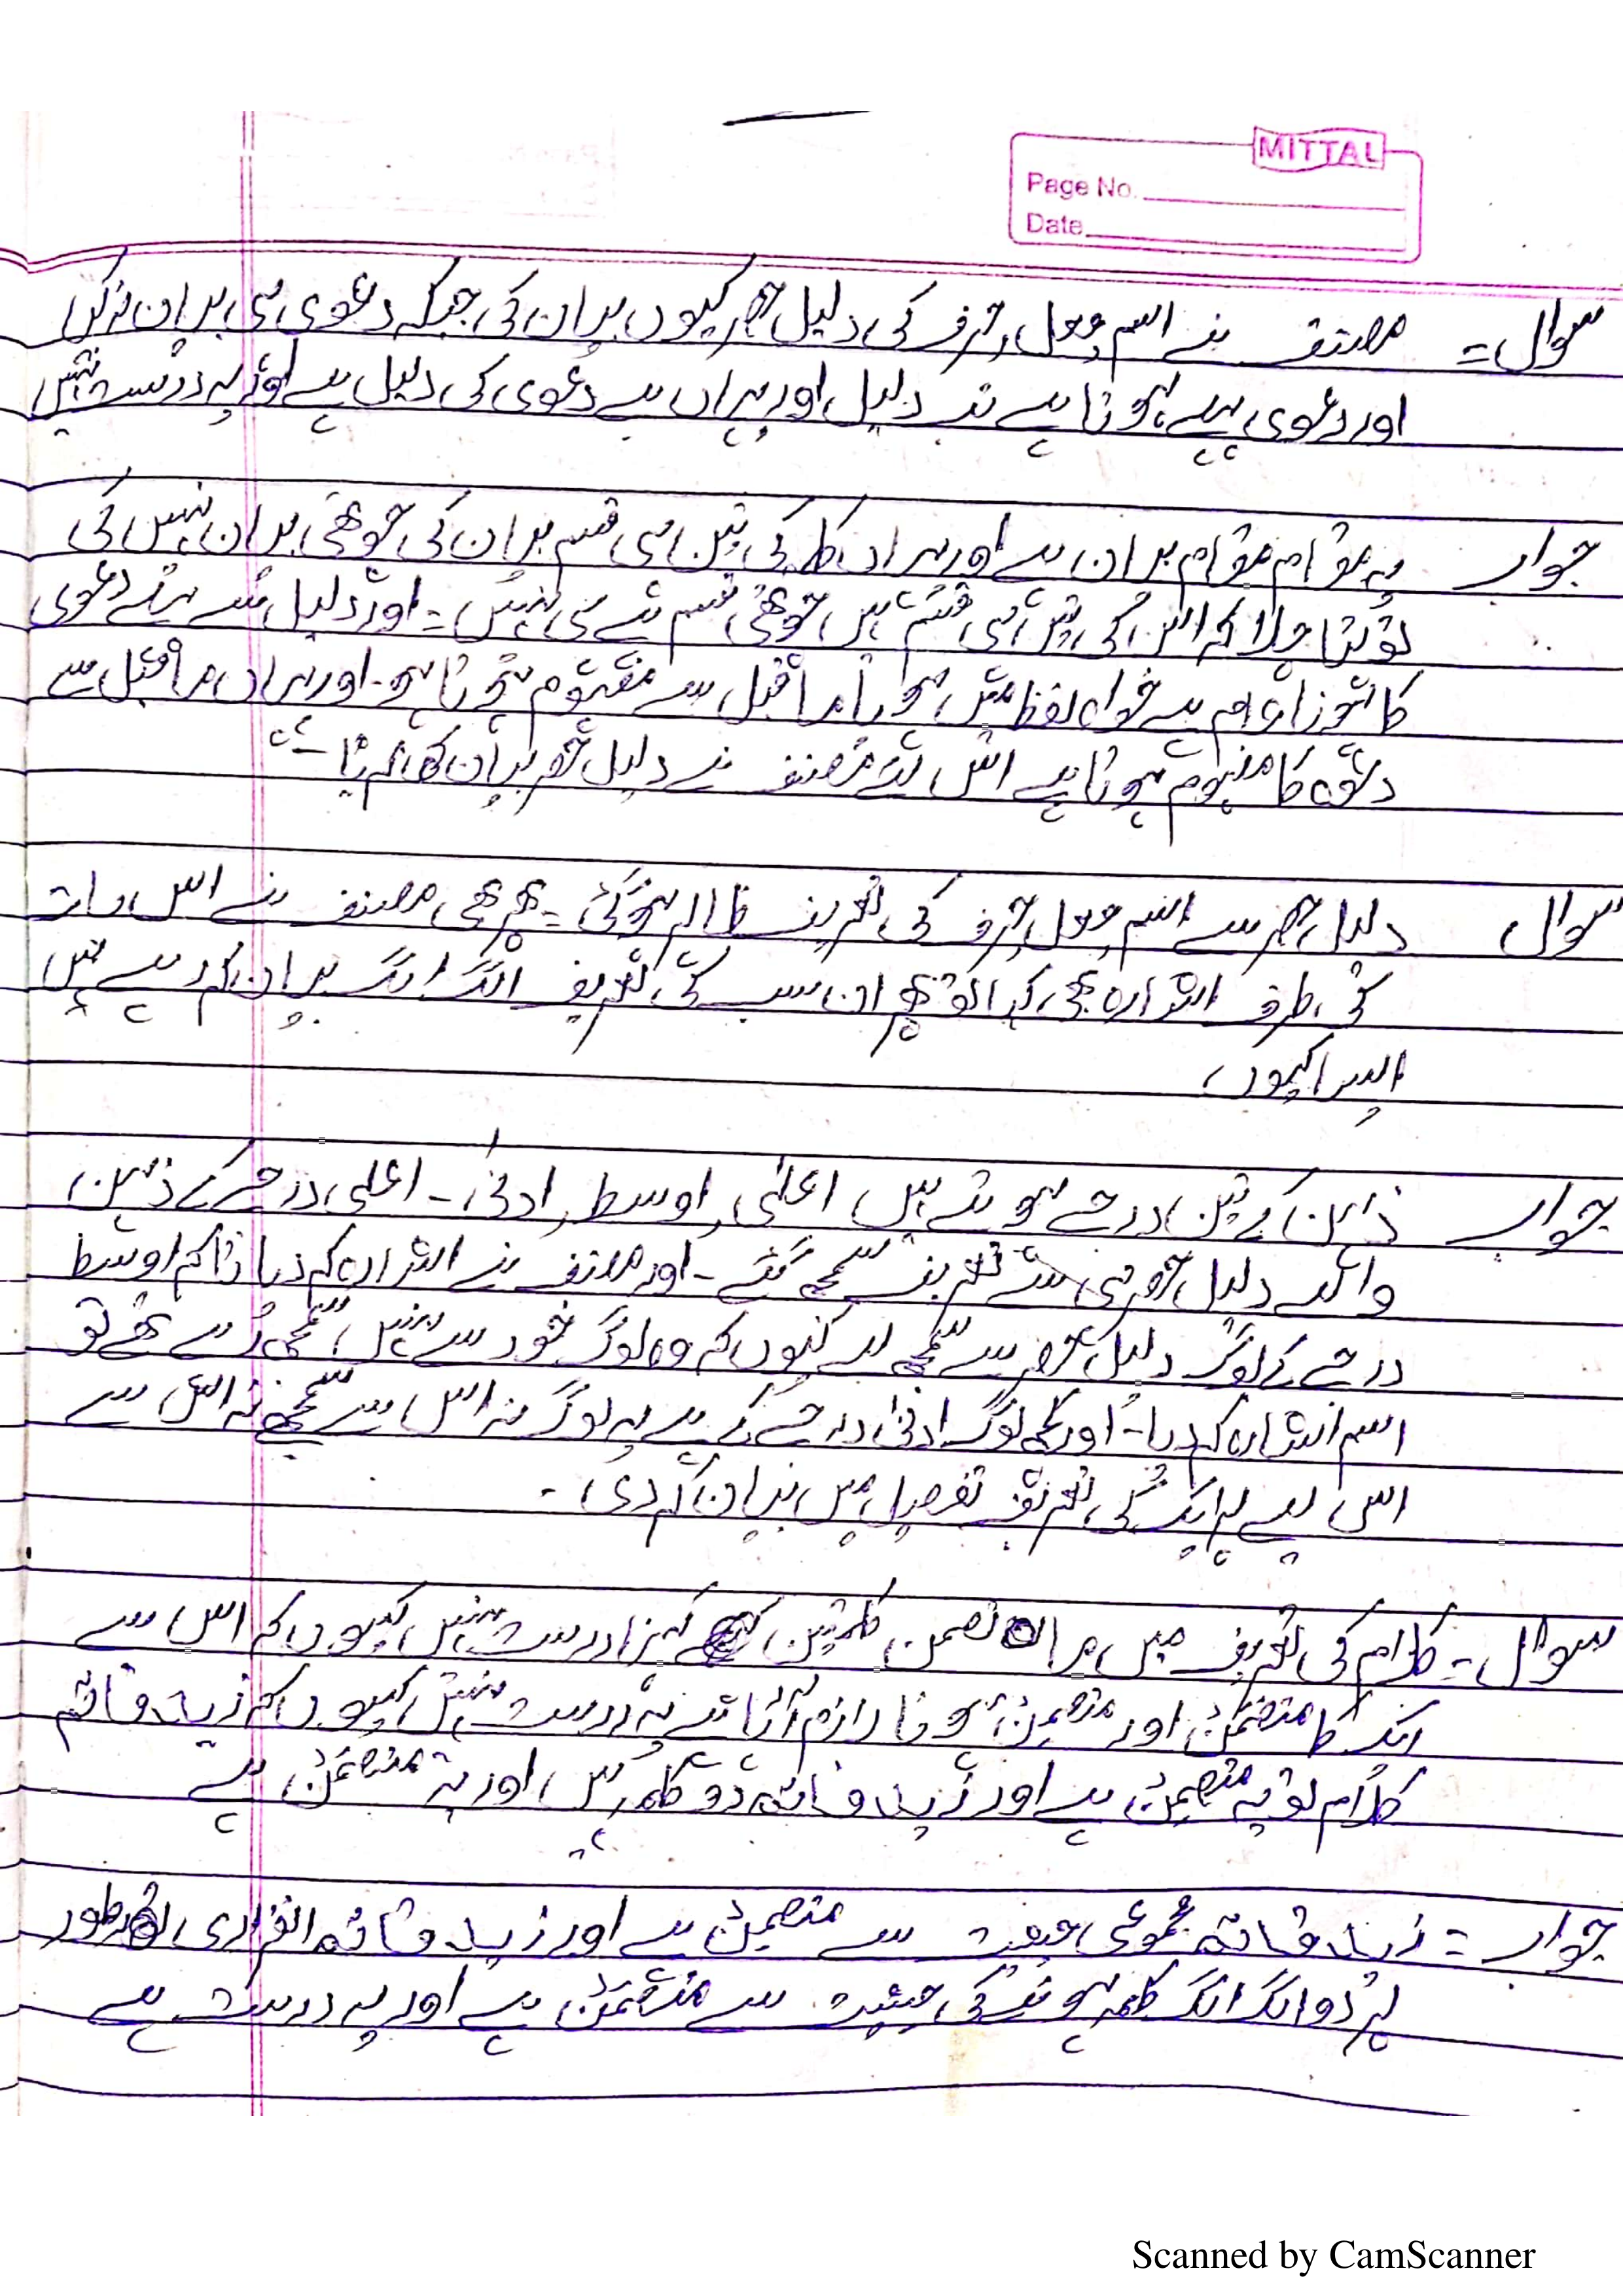 MITTAL
Page No.
Date
سوال = مصنف نے اسم فعل حرف کی دلیل حصر کیوں بیان کی جبکہ دعوی ہی بیان نہ کی
اور دعوی پہلے ہوتا ہے تب دلیل اور یہاں بے دعوی کی دلیل ہے اور یہ درست نہیں
جواب یہ مقام مقام بیان ہے اور یہاں کلمہ کی تین ہی قسم بیان کی چوتھی بیان نہیں کی
تو پتا چلا کہ اس کی تین ہی قسم ہیں چوتھی قسم ہے ہی نہیں - اور دلیل سے پہلے دعوی
کا ہونا عام ہے خواہ لفظ میں ہو یا ماقبل سے مفہوم ہوتا ہو - اور یہاں ماقبل سے
دعوہ کا مفہوم ہوتا ہے اس لئے مصنف نے دلیل حصر بیان کر دیا -
سوال دلیل حصر سے اسم فعل حرف کی تعریف ظاہر ہو گئی - پھر بھی مصنف نے اس بات
کی طرف اشارہ بھی کیا تو پھر ان سب کی تعریف الگ الگ بیان کر رہے ہیں
ایسا کیوں
جواب ذہین کے تین درجے ہوتے ہیں اعلیٰ اوسط ادنی - اعلی درجے کے ذہین
والے دلیل حصر ہی سے تعریف سمجھ گئے - اور مصنف نے اشارہ کر دیا تاکہ اوسط
درجے کے لوگ دلیل حصر سے سمجھ لے کیوں کہ وہ لوگ خود سے نہیں سمجھ رہے تھے تو
اسم اشارہ کر دیا - اور کچھ لوگ ادنی درجے کے ہے یہ لوگ نہ اس سے سمجھے نہ اس سے
اس لیے ہر ایک کی تعریف تفصیل میں بیان کر دی -
سوال = کلام کی تعریف میں ما تضمن کلمتین کہنا درست نہیں کیوں کہ اس سے
ایک کا متضمَن اور متضمِن ہونا لازم آتا ہے یہ درست نہیں کیوں کہ زید قائم
کلام تو یہ متضمِن ہے اور زید قائم دو کلمہ ہیں اور یہ متضمَن ہے
جواب = زید قائم مجموعی حیثیت سے متضمِن ہے اور زید قائم انفرادی طور
پر دو الگ الگ کلمہ ہونے کی حیثیت سے متضمَن ہے اور یہ درست ہے
Scanned by CamScanner